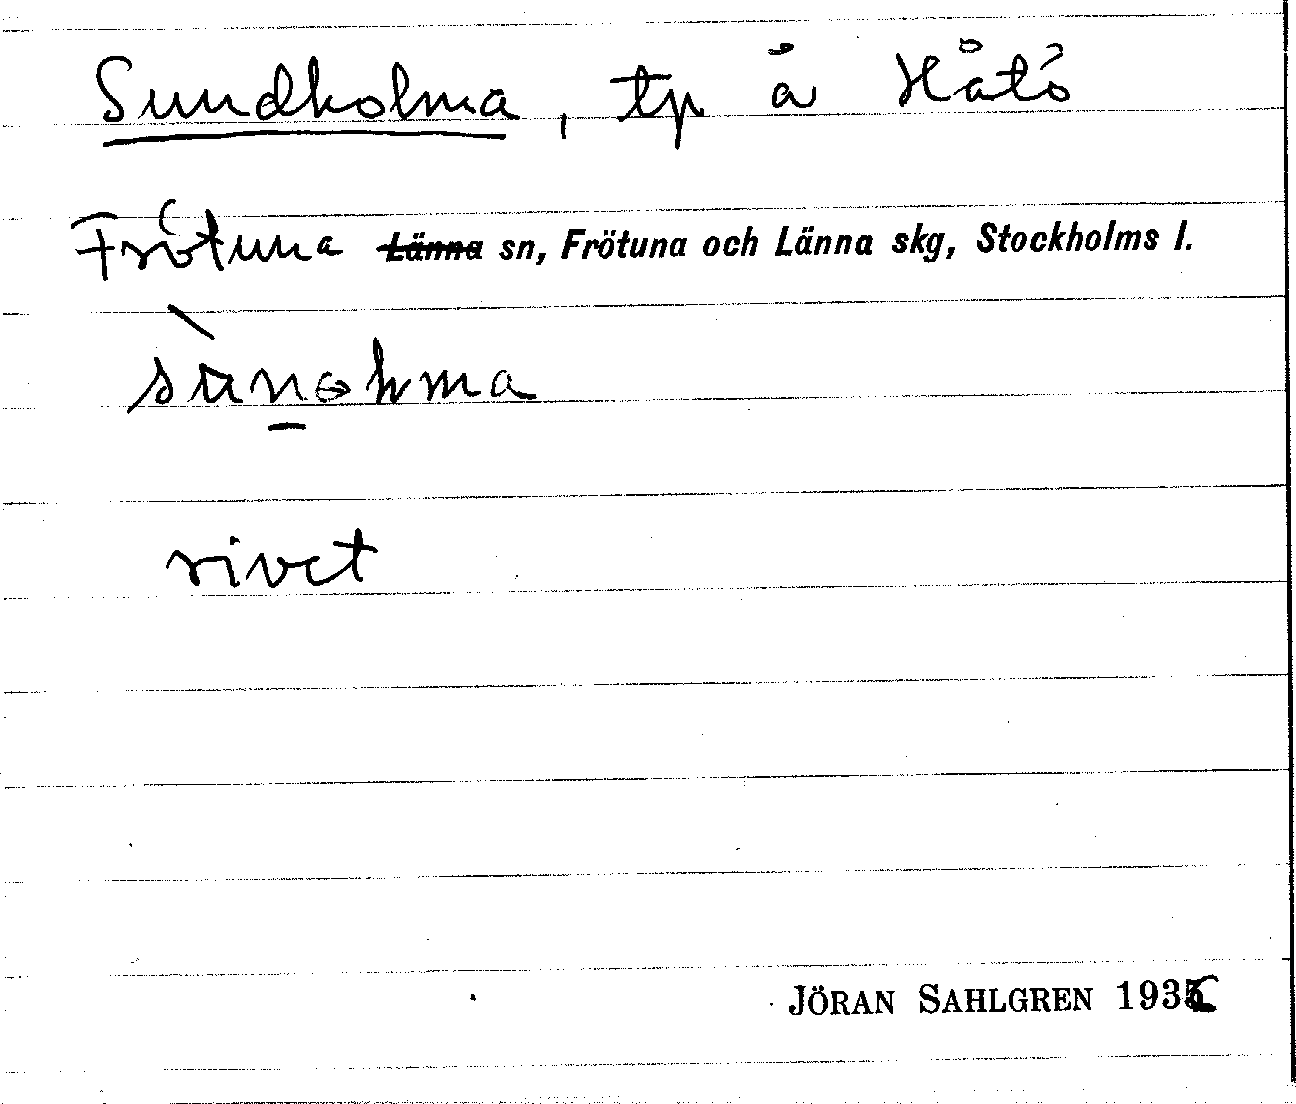 Sundholma, tp å Håtö
Frötuna Länna sn, Frötuna och Länna skg, Stockholms l.
rivet
JÖRAN SAHLGREN